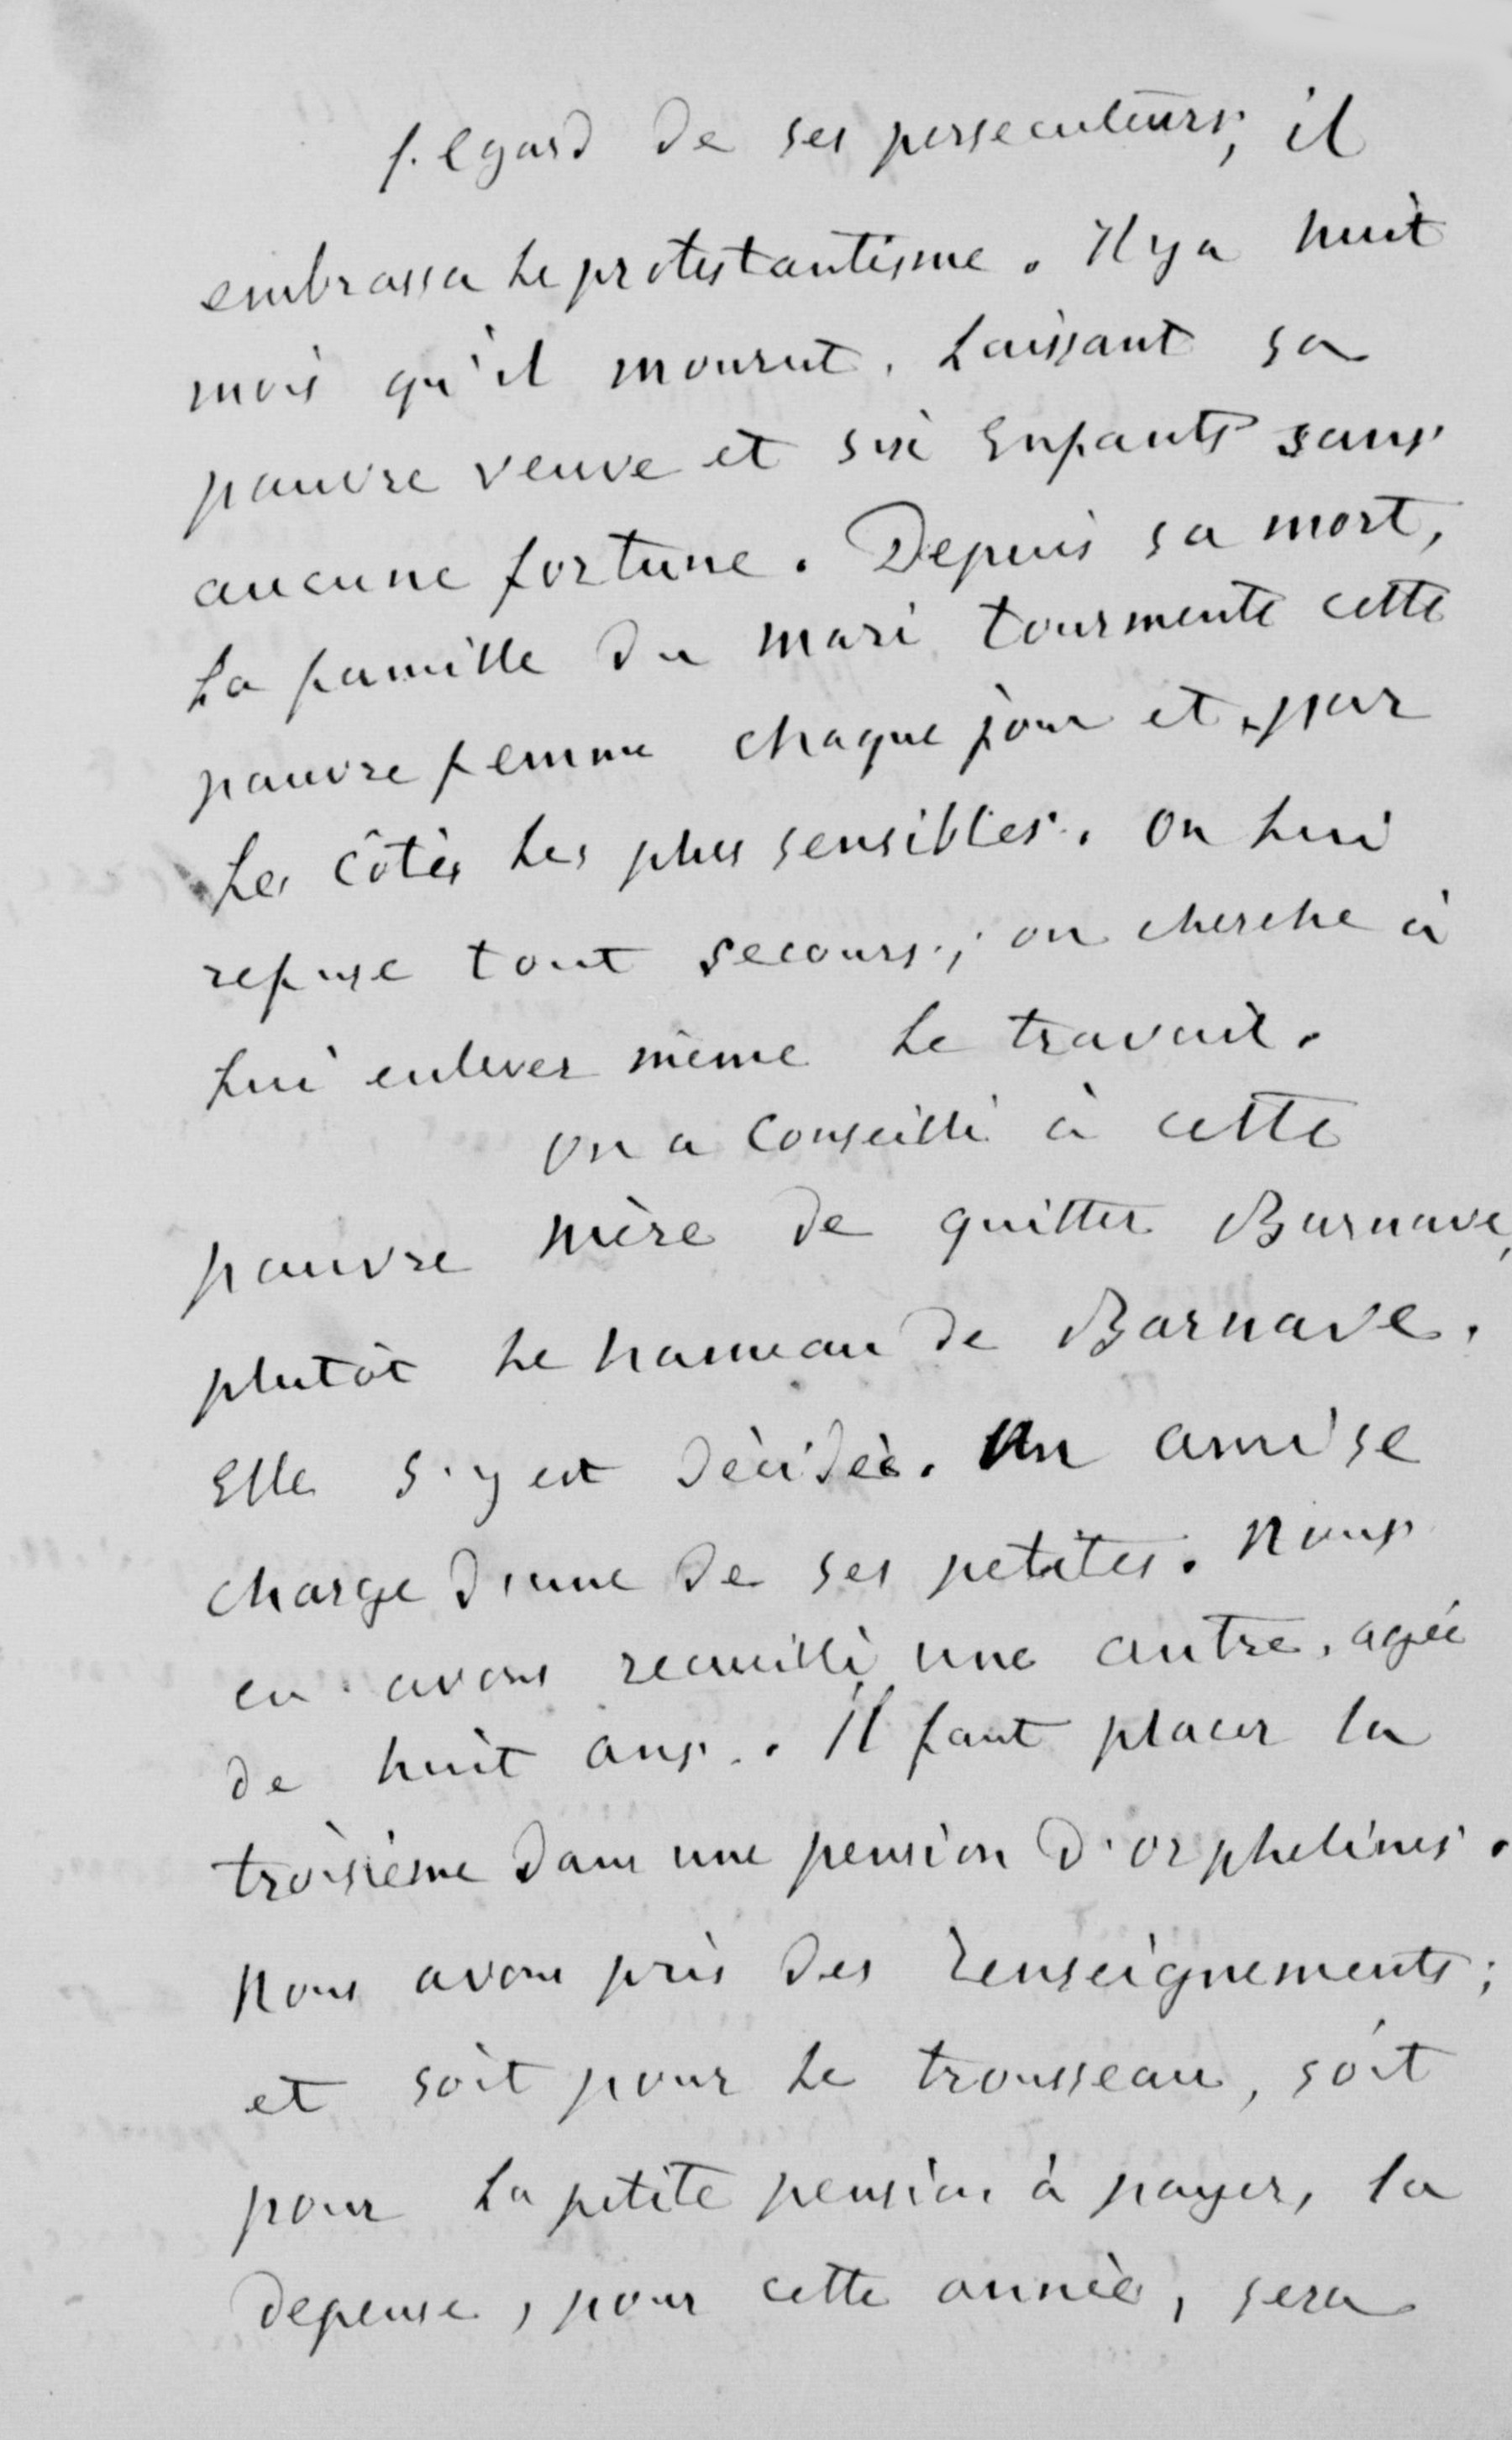 l'egard de ses persecuteurs, il
embrassa le protestantisme. Il y a huit
mois qu'il mourut, laissant sa
pauvre veuve et six enfants sans
aucune fortune. Depuis sa mort,
la famille du mari tourmente cette
pauvre femme chaque jour et par
les côtés les plus sensibles. On lui
refuse tout secours; on cherche à
lui enlever même le travail.
On a conseillé à cette
pauvre mère de quitter Barnave,
plutôt le hameau de Barnave.
Elle s'y est décidée. Un ami se
charge d'une de ses petites. Nous
en avons recueilli une autre, agée
de huit ans. Il faut placer la
troisième dans une pension d'orphelines.
Nous avons pris des renseignements;
et soit pour le trousseau, soit
pour la petite pension à payer, la
depense, pour cette année, sera